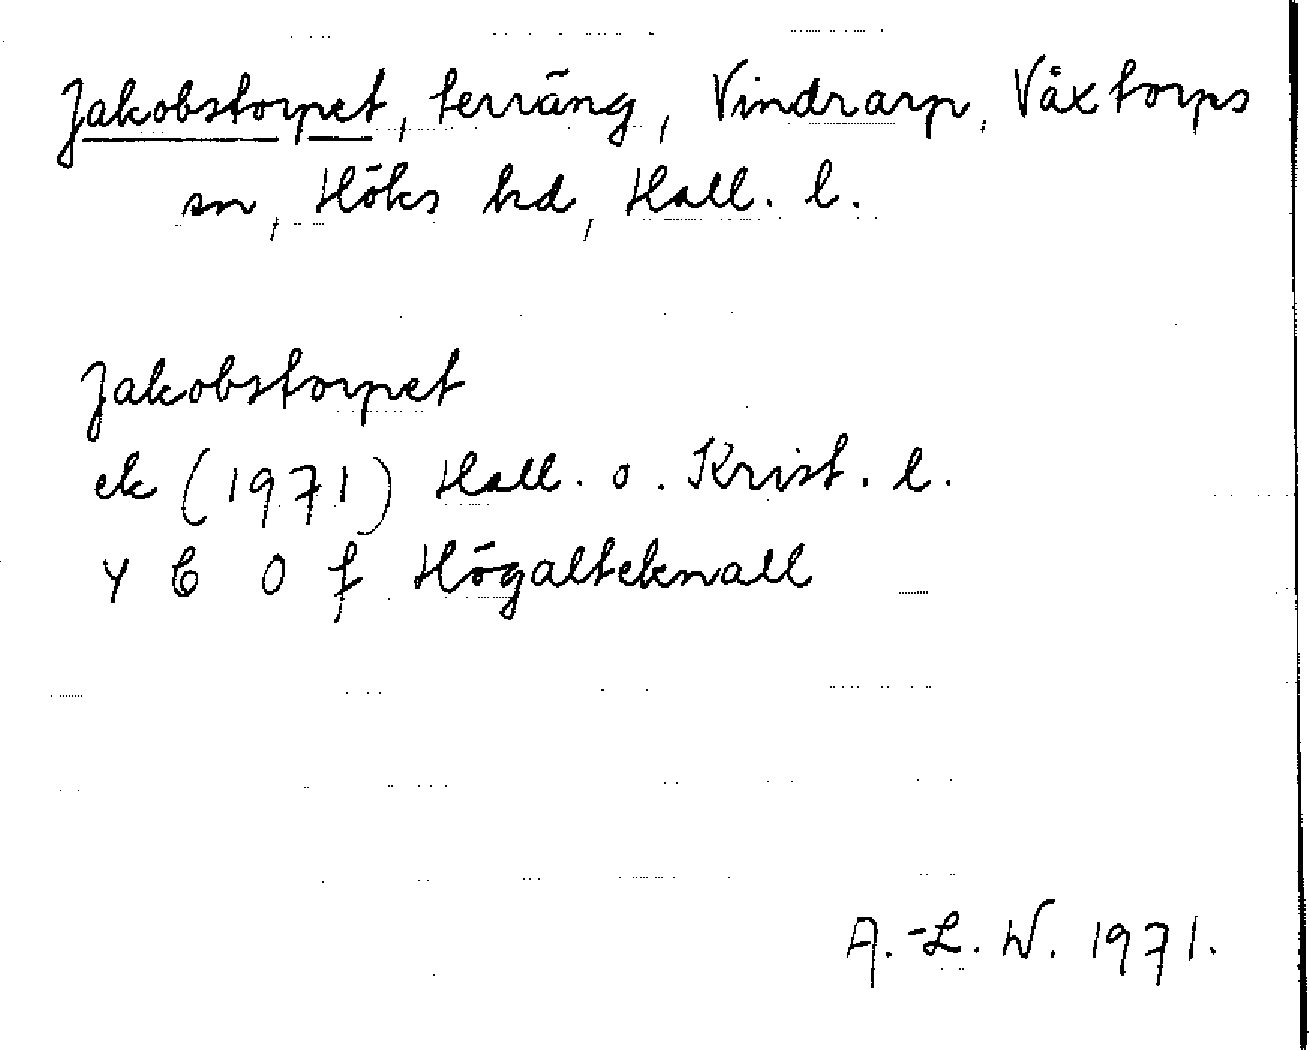 Jakobstorpet, terräng, Vindrarp, Våxtorps
sn, Höks hd, Hall. l.
Jakobstorpet
ek (1971) Hall. o. Krist. l.
Y C O f Högalteknall
A.-L. W. 1971.